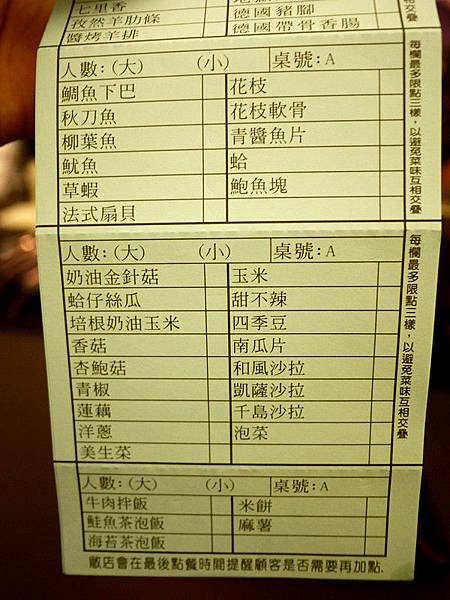 七里香
孜然羊肋條 德國豬腳
醬烤羊排 德國帶骨香腸
人數:(大) (小) 桌號:A
鯛魚下巴 花枝
秋刀魚 花枝軟骨
柳葉魚 青醬魚片
魷魚 蛤
草蝦 鮑魚塊
法式扇貝
每欄最多限點三樣，以避免菜味互相交疊
人數:(大) (小) 桌號:A
奶油金針菇 玉米
蛤仔絲瓜 甜不辣
培根奶油玉米 四季豆
香菇 南瓜片
杏鮑菇 和風沙拉
青椒 凱薩沙拉
蓮藕 千島沙拉
洋蔥 泡菜
美生菜
每欄最多限點三樣，以避免菜味互相交疊
人數:(大) (小) 桌號:A
牛肉拌飯 米餅
鮭魚茶泡飯 麻薯
海苔茶泡飯
敝店會在最後點餐時間提醒顧客是否需要再加點.